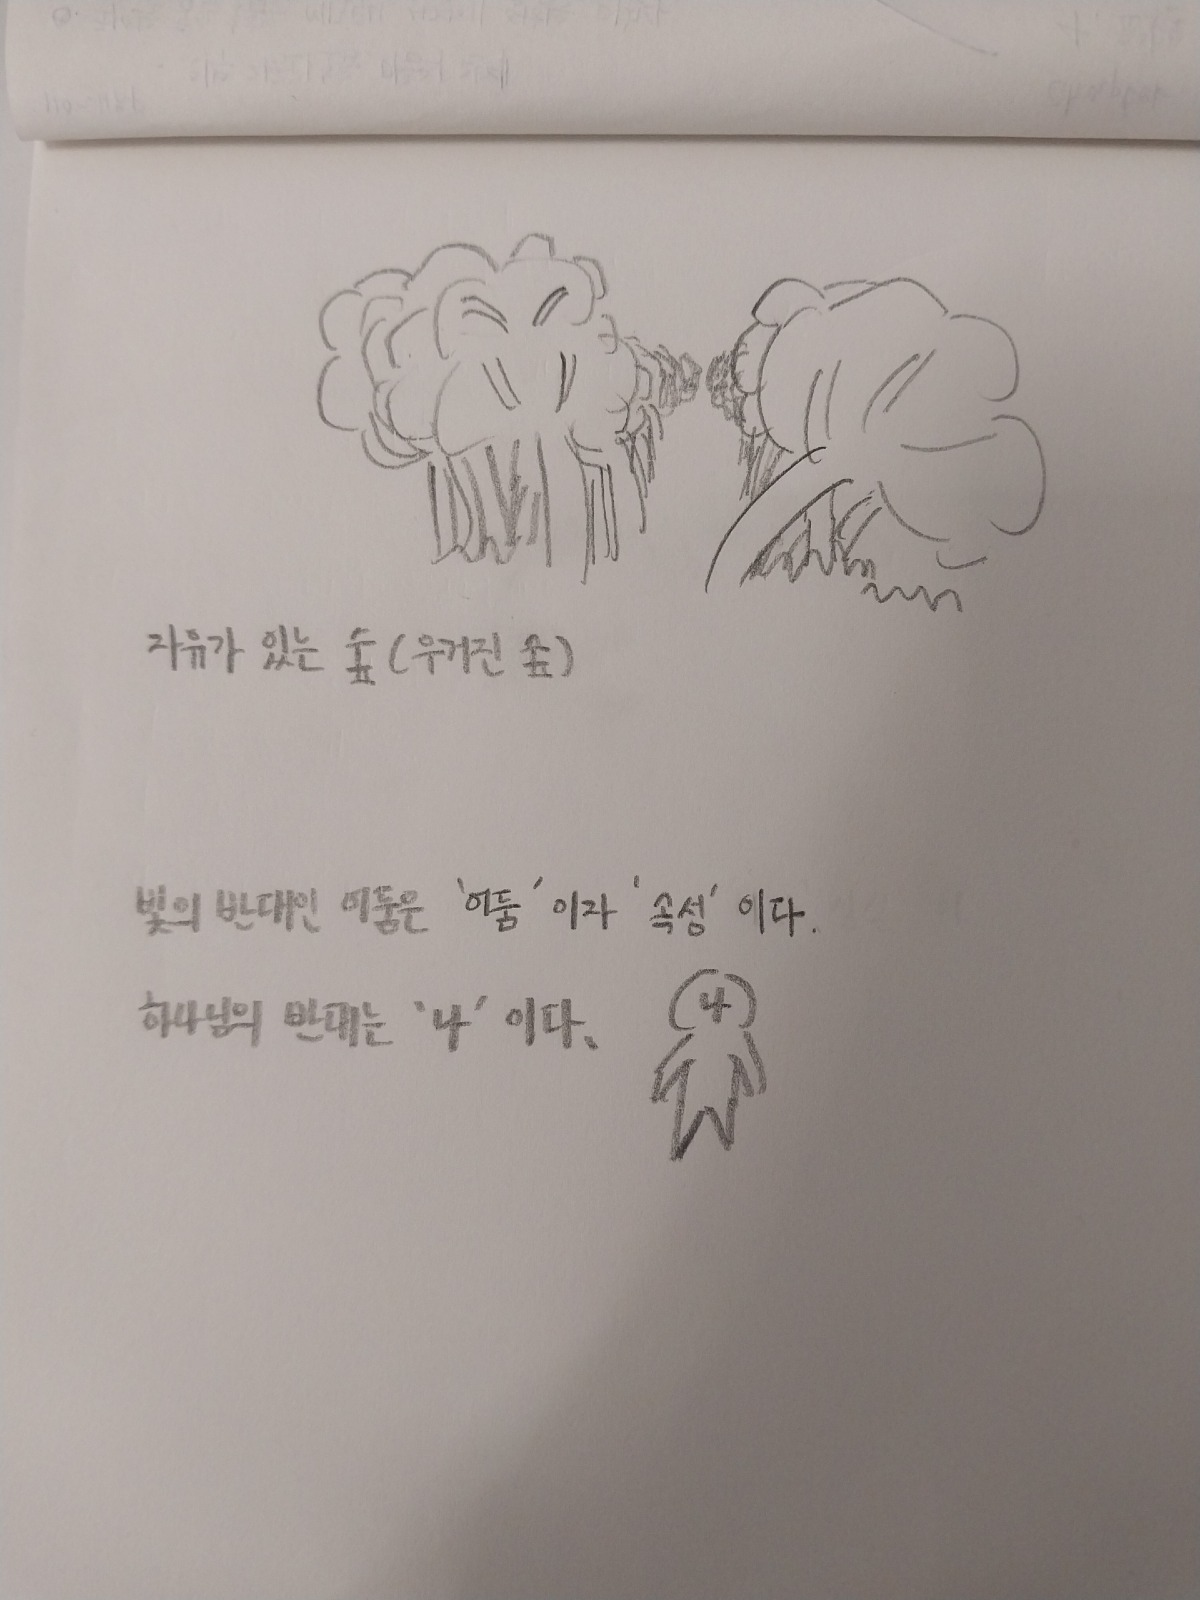 자유가 있는 숲 (우거진 숲)
빛의 반대인 어둠은 '어둠'이자 '속성'이다.
하나님의 반대는 '나'이다.
나